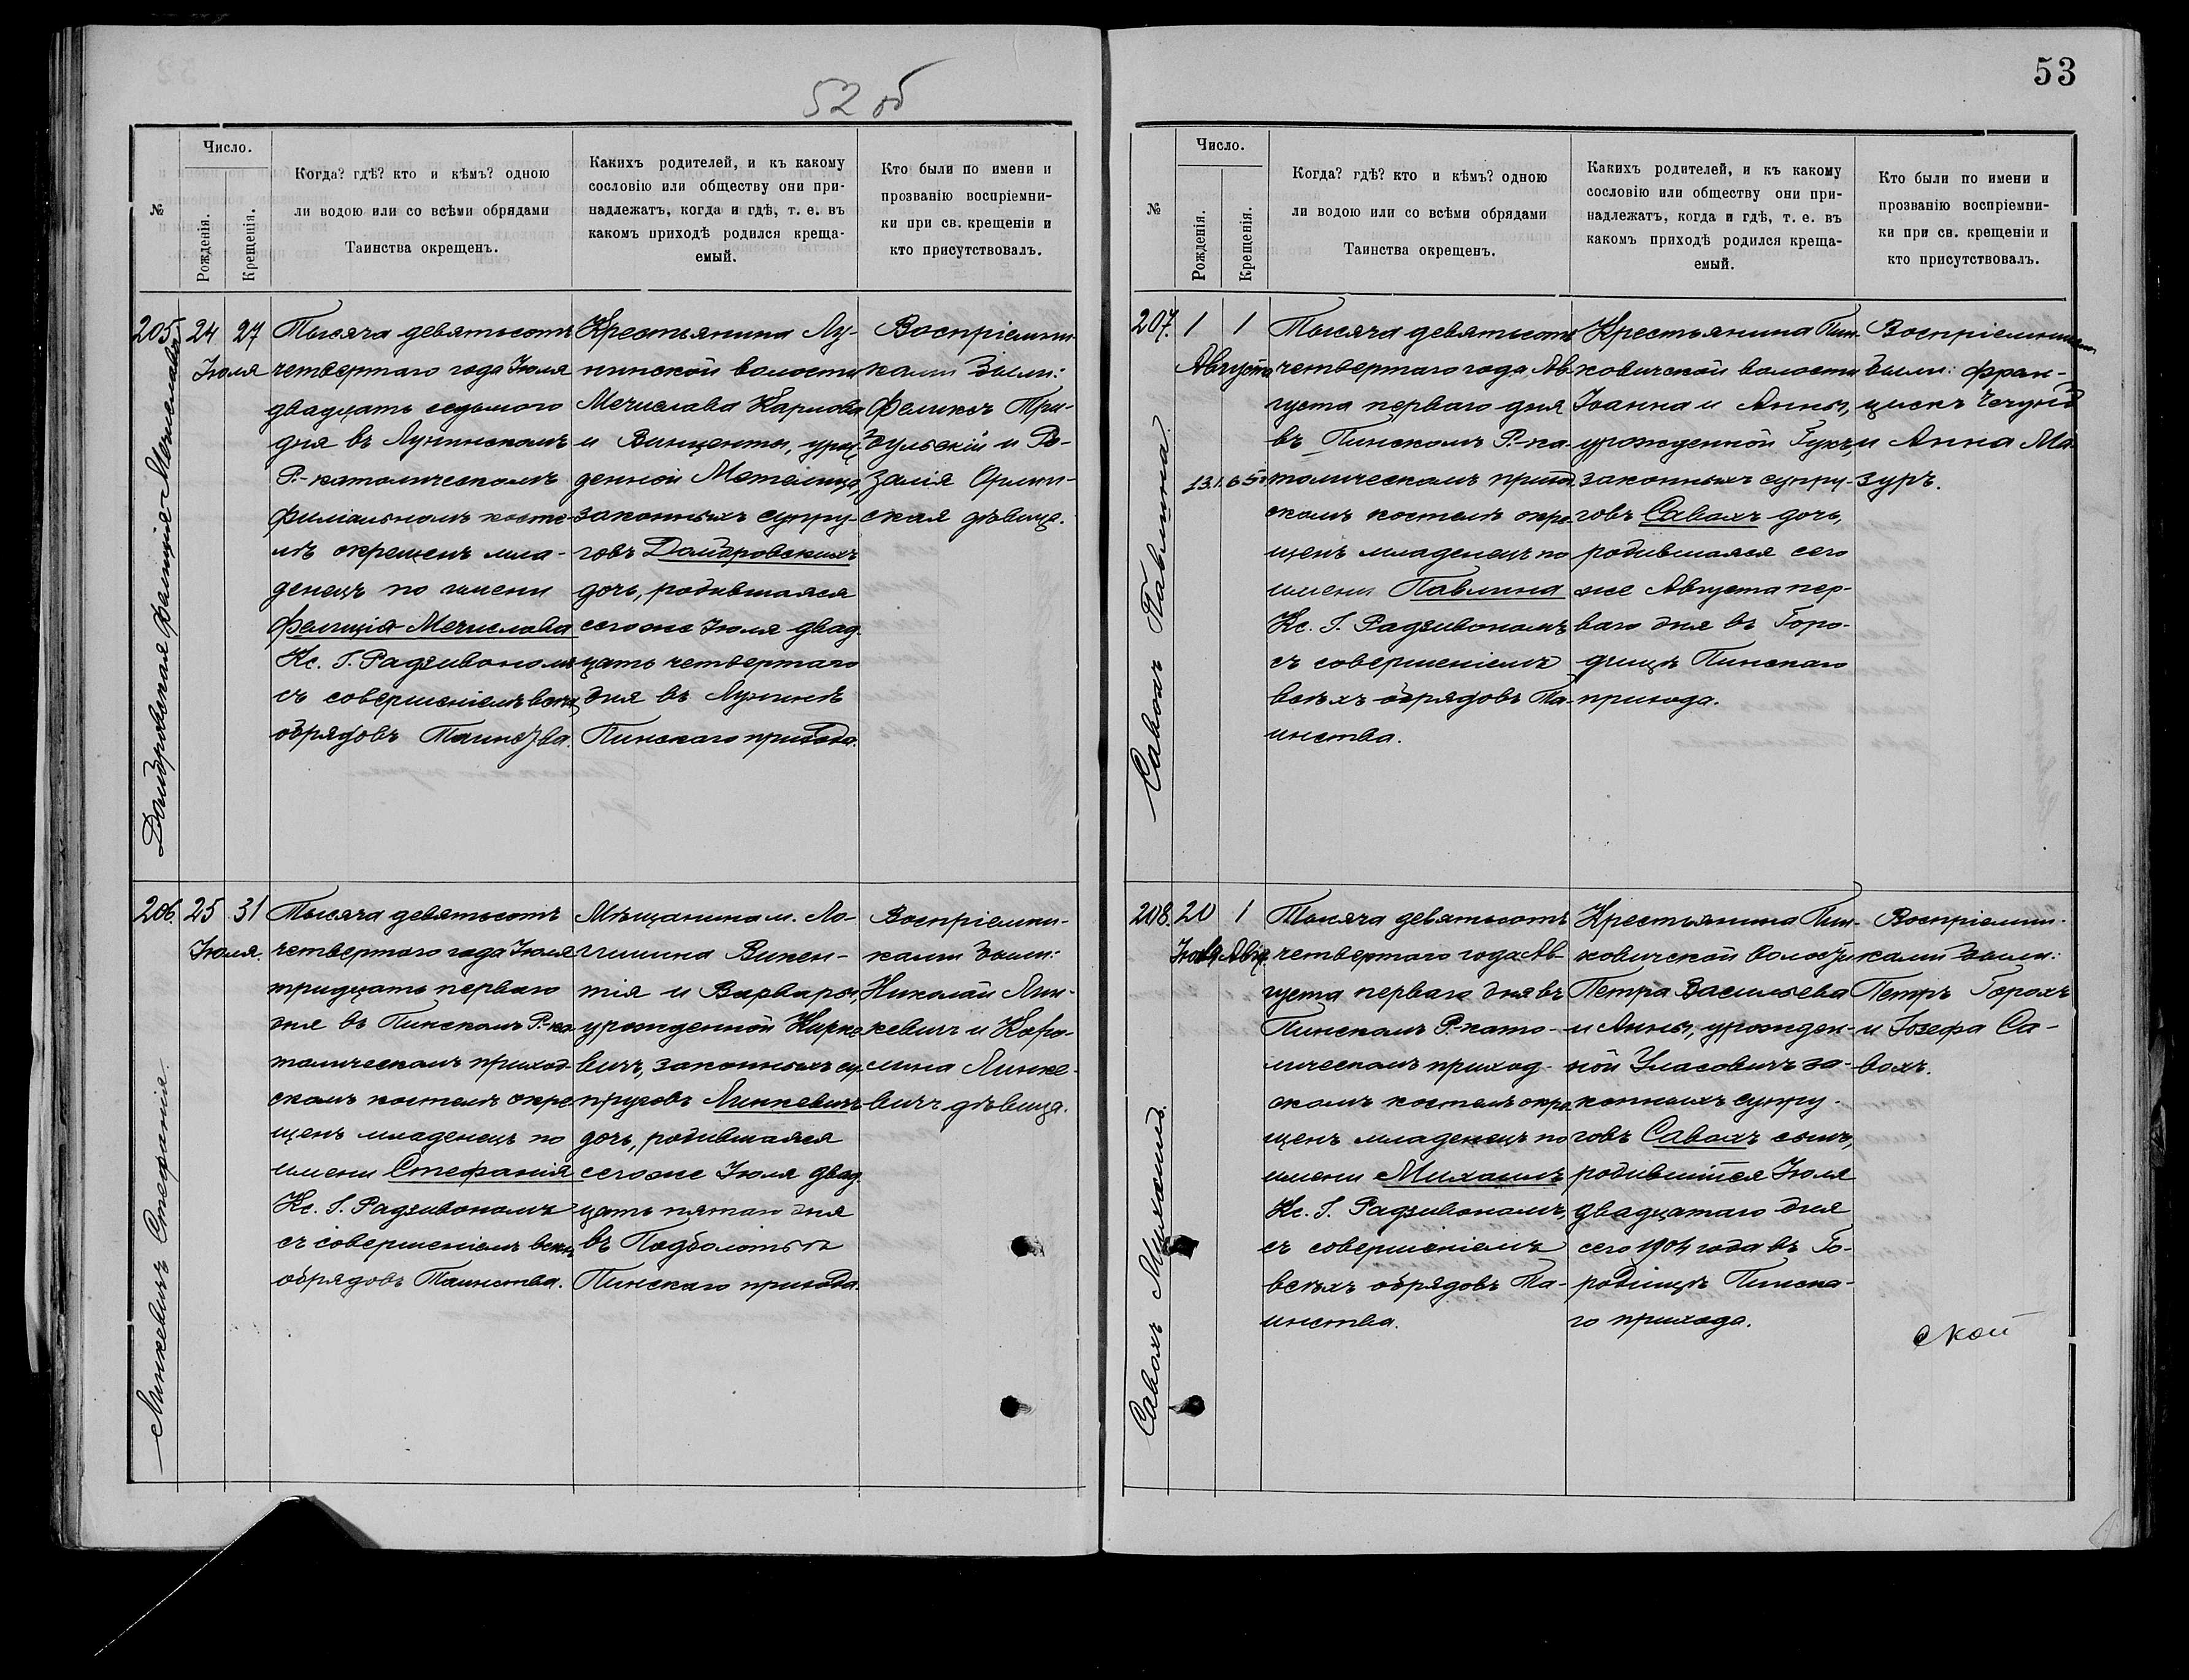 52 об
№
Число.
Рожденія.
Крещенія.
Когда? гдѣ? кто и кѣмъ? одною
ли водою или со всѣми обрядами
Таинства окрещенъ.
Какихъ родителей, и къ какому
сословію или обществу они при-
надлежатъ, когда и гдѣ, т. е. въ
какомъ приходѣ родился креща-
емый.
Кто были по имени и
прозванію воспріемни-
ки при св. крещеніи и
кто присутствовалъ.
205.
Фелиція-Мечислава
24
27
Іюля
Тысяча девятьсотъ
четвертаго года Іюля
двадцать седьмого
дня въ Лунинскомъ
Р.-католическомъ
филіальномъ косте-
лѣ окрещенъ мла-
денецъ по имени
Фелиція-Мечислава
Кс. І. Радзивономъ
съ совершеніемъ всѣхъ
обрядовъ Таинства.
Крестьянина Лу-
нинской волости
Мечислава Карлова
и Винценты, урож-
денной Метелица,
законныхъ супру-
говъ
дочь, родившаяся
сегоже Іюля двад-
цать четвертаго
дня въ Лунинѣ
Пинскаго прихода.
Воспріемни-
ками были:
Феликсъ При-
бульскій и Ро-
залія Орлин-
ская дѣвица.
206.
Линкевичъ Стефанія.
25
31
Іюля.
Тысяча девятьсотъ
четвертаго года Іюля
тридцать перваго
дня въ Пинскомъ Р.-ка-
толическомъ приход-
скомъ костелѣ окре-
щенъ младенецъ по
имени Стефанія
Кс. І. Радзивономъ
съ совершеніемъ всѣхъ
обрядовъ Таинства.
Мѣщанина м. Ло-
гишина Викен-
тія и Варвары,
урожденной Кирке-
вичъ, законныхъ су-
пруговъ Линкевичъ
дочь, родившаяся
сегоже Іюля двад-
цать пятаго дня
въ Подболотьѣ
Пинскаго прихода.
Воспріемни-
ками были:
Николай Лин-
кевичъ и Каро-
лина Линке-
вичъ дѣвица.
53
№
Число.
Рожденія.
Крещенія.
Когда? гдѣ? кто и кѣмъ? одною
ли водою или со всѣми обрядами
Таинства окрещенъ.
Какихъ родителей, и къ какому
сословію или обществу они при-
надлежатъ, когда и гдѣ, т. е. въ
какомъ приходѣ родился креща-
емый.
Кто были по имени и
прозванію воспріемни-
ки при св. крещеніи и
кто присутствовалъ.
207.
Савохъ Павлина.
1
1
Августа
Тысяча девятьсотъ
четвертаго года Ав-
густа перваго дня
въ Пинскомъ Р.-ка-
толическомъ приход-
скомъ костелѣ окре-
щенъ младенецъ по
имени Павлина
Кс. І. Радзивономъ
съ совершеніемъ
всѣхъ обрядовъ Та-
инства.
Крестьянина Пин-
ковичской волости
Іоанна и Анны,
урожденной Гукъ,
законныхъ супру-
говъ Савохъ дочь,
родившаяся сего
же Августа пер-
ваго дня въ Горо-
дищѣ Пинскаго
прихода.
Воспріемниками
были: Фран-
цискъ
и Анна Ма-
зуръ.
208.
Савохъ Михаилъ.
20
1
Іюля Авг.
Тысяча девятьсотъ
четвертаго года Ав-
густа перваго дня въ
Пинскомъ Р.-като-
лическомъ приход-
скомъ костелѣ окре-
щенъ младенецъ по
имени Михаилъ
Кс. І. Радзивономъ,
съ совершеніемъ
всѣхъ обрядовъ Та-
инства.
Крестьянина Пин-
ковичской волости
Петра Васильева
и Анны, урожден-
ной Уласовичъ за-
конныхъ супру-
говъ Савохъ сынъ,
родившійся Іюля
двадцатаго дня
сего 1904 года въ Го-
родищѣ Пинска-
го прихода.
Воспріемни-
ками были:
Петръ Горохъ
и Іозефа Са-
вохъ.
ской